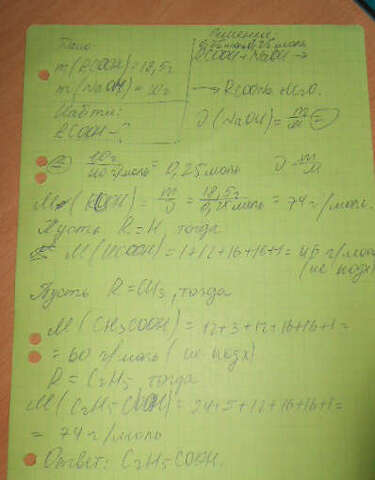 Дано
m(RCOOH)=18,5г
m(NaOH)=10г
Найти:
RCOOH-?
Решение
0,25 моль 0,25 моль
RCOOH+NaOH→
→RCOONa+H₂O.
ν(NaOH)=m/M=
= 10г/40г/моль = 0,25моль ν=m/M
M(RCOOH)=m/ν=18,5г/0,25моль=74г/моль.
Пусть R=H, тогда
M(HCOOH)=1+12+16+16+1=46 г/моль
(не подх)
Пусть R=CH₃, тогда
M(CH₃COOH)=12+3+12+16+16+1=
=60 г/моль (не подх)
R=C₂H₅, тогда
M(C₂H₅COOH)=24+5+12+16+16+1=
=74 г/моль
Ответ: C₂H₅COOH.